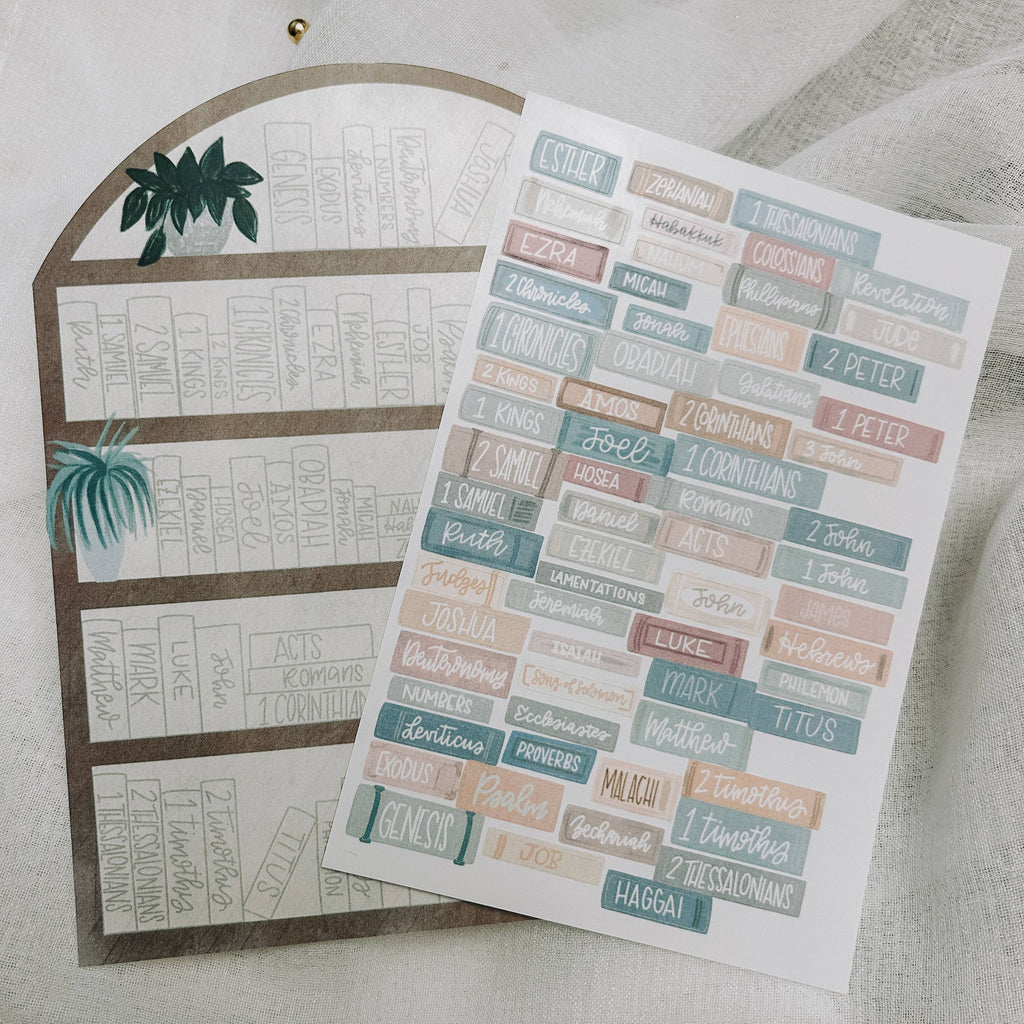 GENESIS
EXODUS
Leviticus
NUMBERS
Deuteronomy
JOSHUA
Ruth
1 SAMUEL
2 SAMUEL
1 KINGS
2 KINGS
1 CHRONICLES
2 Chronicles
EZRA
Nehemiah
ESTHER
JOB
EZEKIEL
Daniel
HOSEA
Joel
AMOS
OBADIAH
Jonah
MICAH
Matthew
MARK
LUKE
John
ACTS
Romans
1 CORINTHIAN
1 THESSALONIANS
2 THESSALONIANS
1 timothy
2 timothy
TITUS
ESTHER
ZEPHANIAH
1 THESSALONIANS
Nehemiah
Habakkuk
COLOSSIANS
EZRA
NAHUM
Phillipians
Revelation
2 Chronicles
MICAH
Jonah
EPHESIANS
JUDE
1 CHRONICLES
OBADIAH
Galatians
2 PETER
2 KINGS
AMOS
2 CORINTHIANS
1 PETER
1 KINGS
Joel
1 CORINTHIANS
3 John
2 SAMUEL
HOSEA
Romans
2 John
1 SAMUEL
Daniel
ACTS
1 John
Ruth
EZEKIEL
LAMENTATIONS
John
JAMES
Judges
Jeremiah
LUKE
Hebrews
JOSHUA
ISAIAH
MARK
PHILEMON
Deuteronomy
[Song of Solomon]
Matthew
TITUS
NUMBERS
Ecclesiastes
Leviticus
PROVERBS
MALACHI
2 timothy
EXODUS
Psalm
Zechariah
1 timothy
GENESIS
JOB
2 THESSALONIANS
HAGGAI